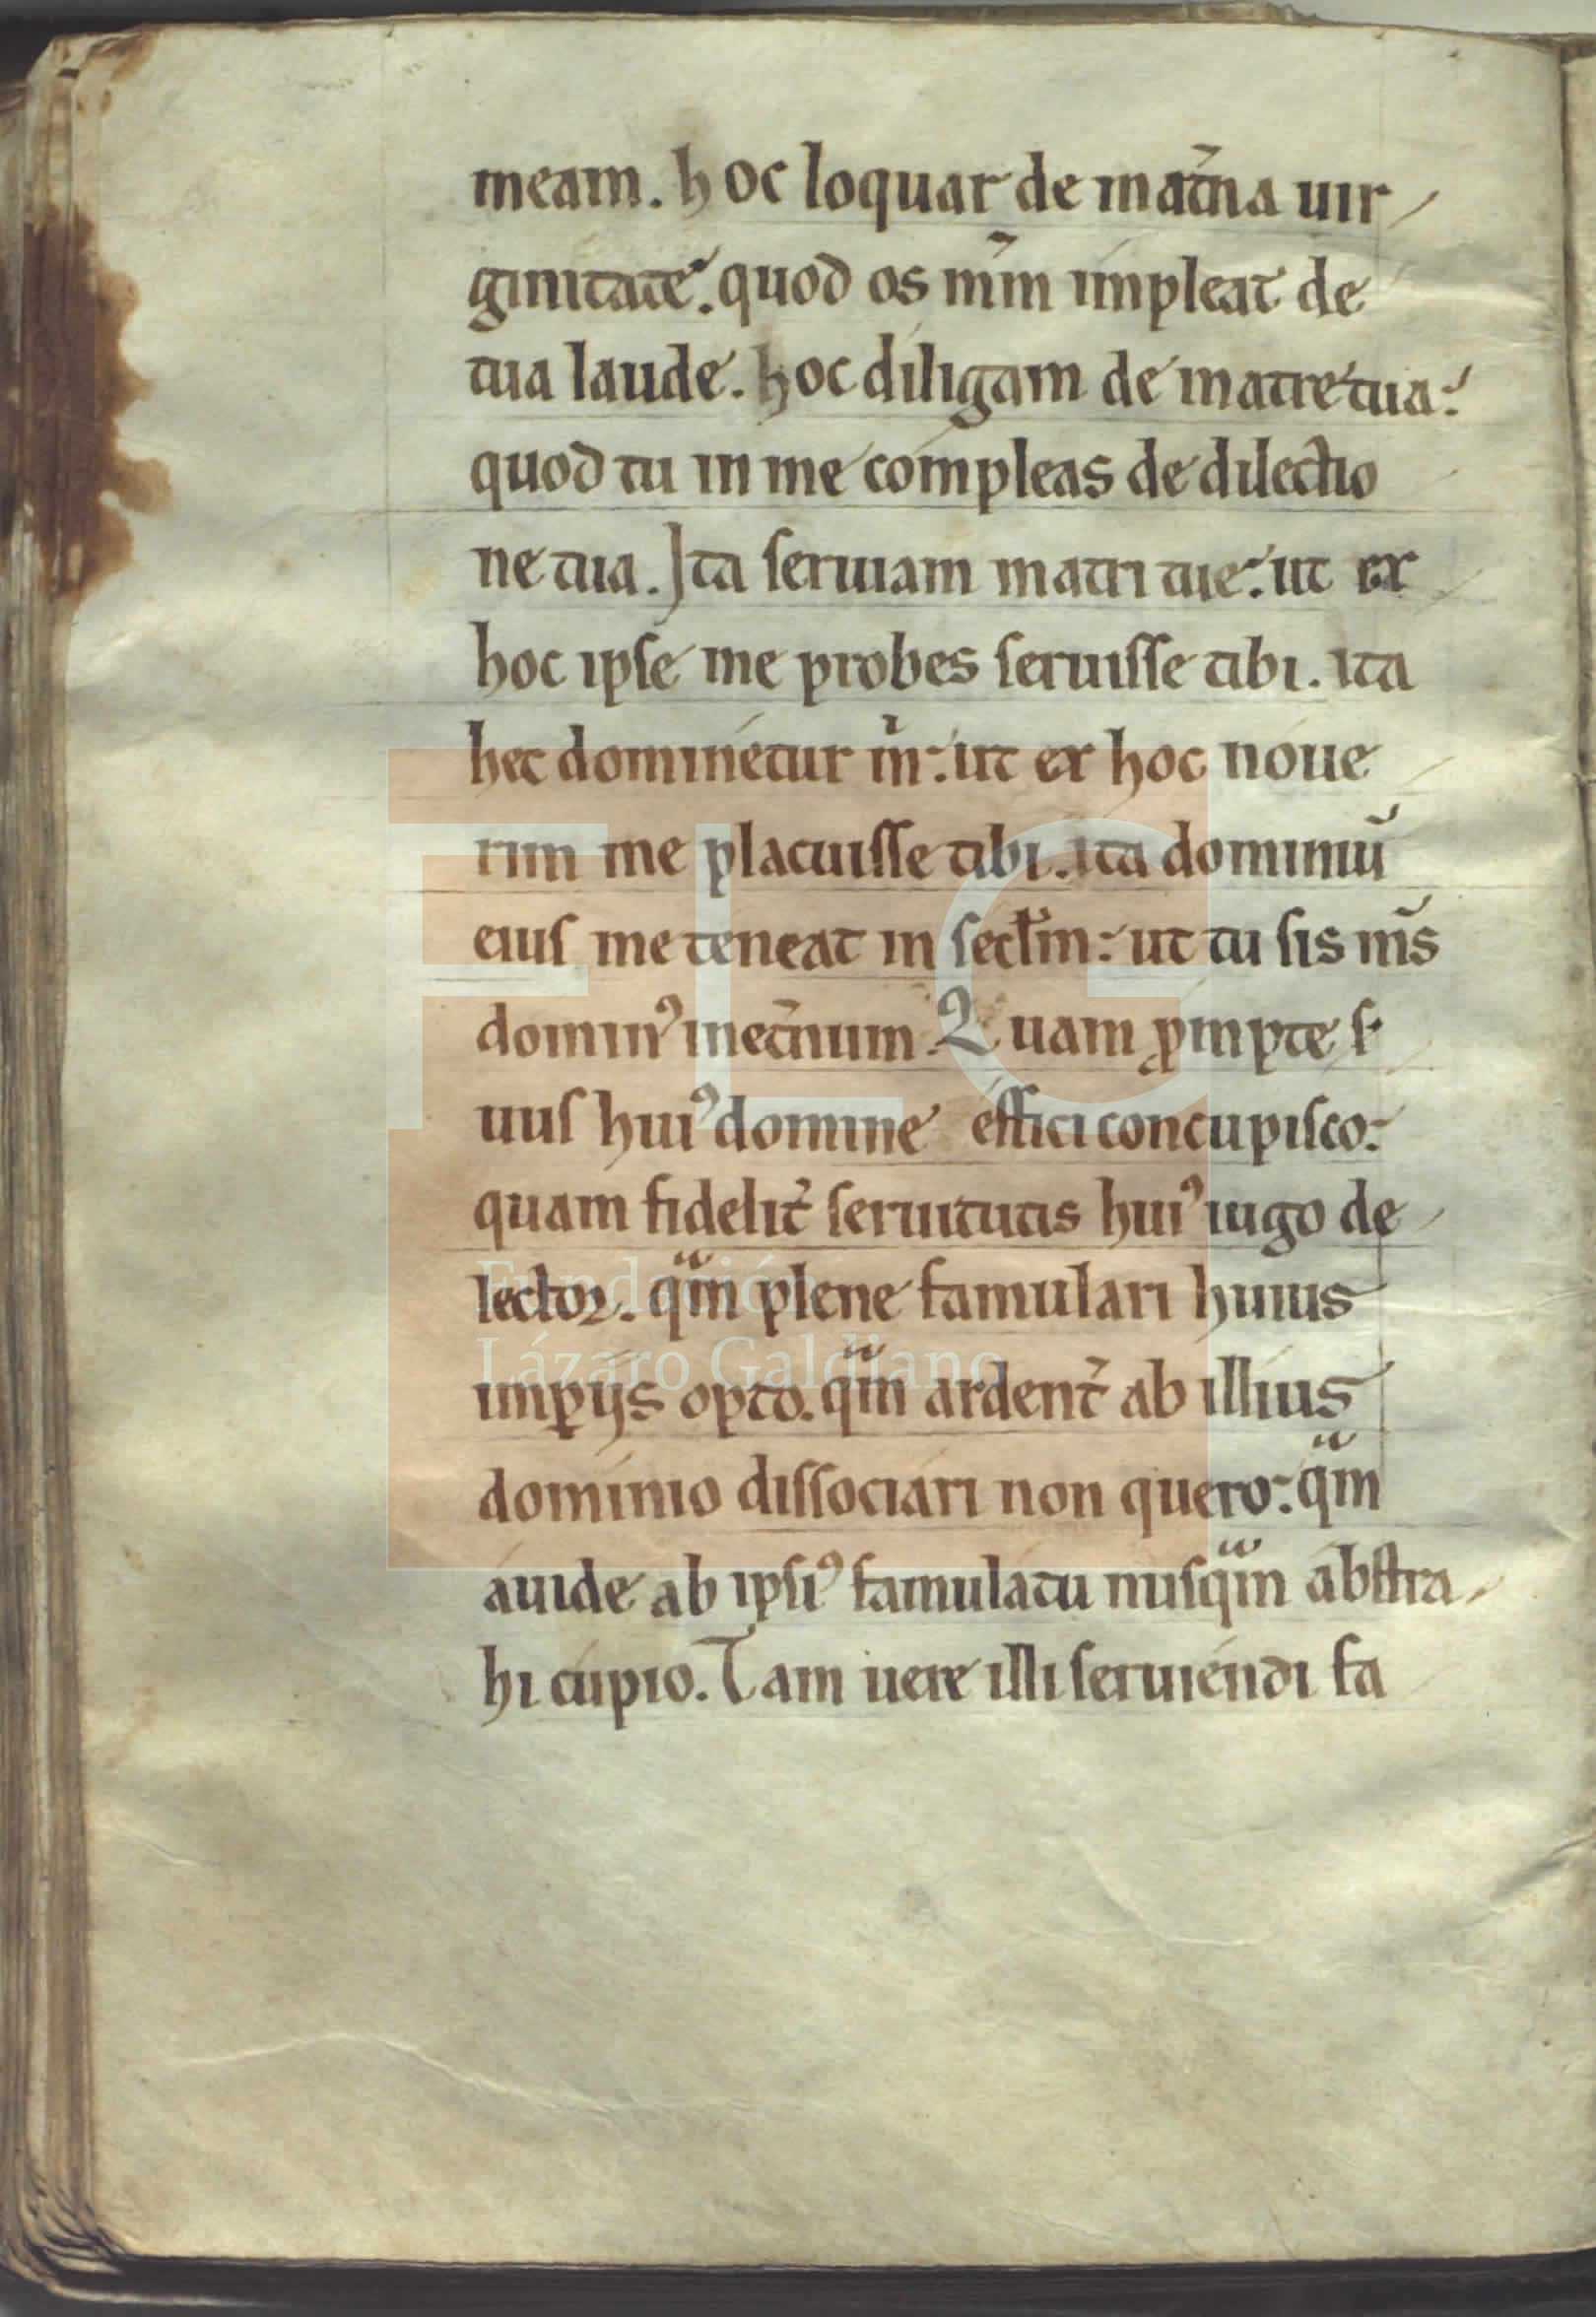 meam. hoc loquar de mat̃na uir
ginitate. quod os m̃m impleat de
tua laude. hoc diligam de matre tua:
quod tu in me compleas de dilectio
ne tua. Ita seruiam matri tue: ut ex
hoc ipse me probes seruisse tibi. ita
hec dominetur m̃: ut ex hoc noue
rim me placuisse tibi. ita dominiũ
eius me teneat in sectm̃: ut tu sis m̃s
dominꝰ inet̃num. Quam ꝓmpte s
uus huiꝰ domine effici concupisco:
quam fidelit̃ seruitutis huiꝰ iugo de
lector. qm̃ plene famulari huius
imꝑijs opto. qm̃ ardent̃ ab illius
dominio dissociari non quero: qm̃
auide ab ipsiꝰ famulatu nusqm̃ abstra
hi cupio. Tam uere illi seruiendi fa
Fundación
Lázaro Galdiano
FLG